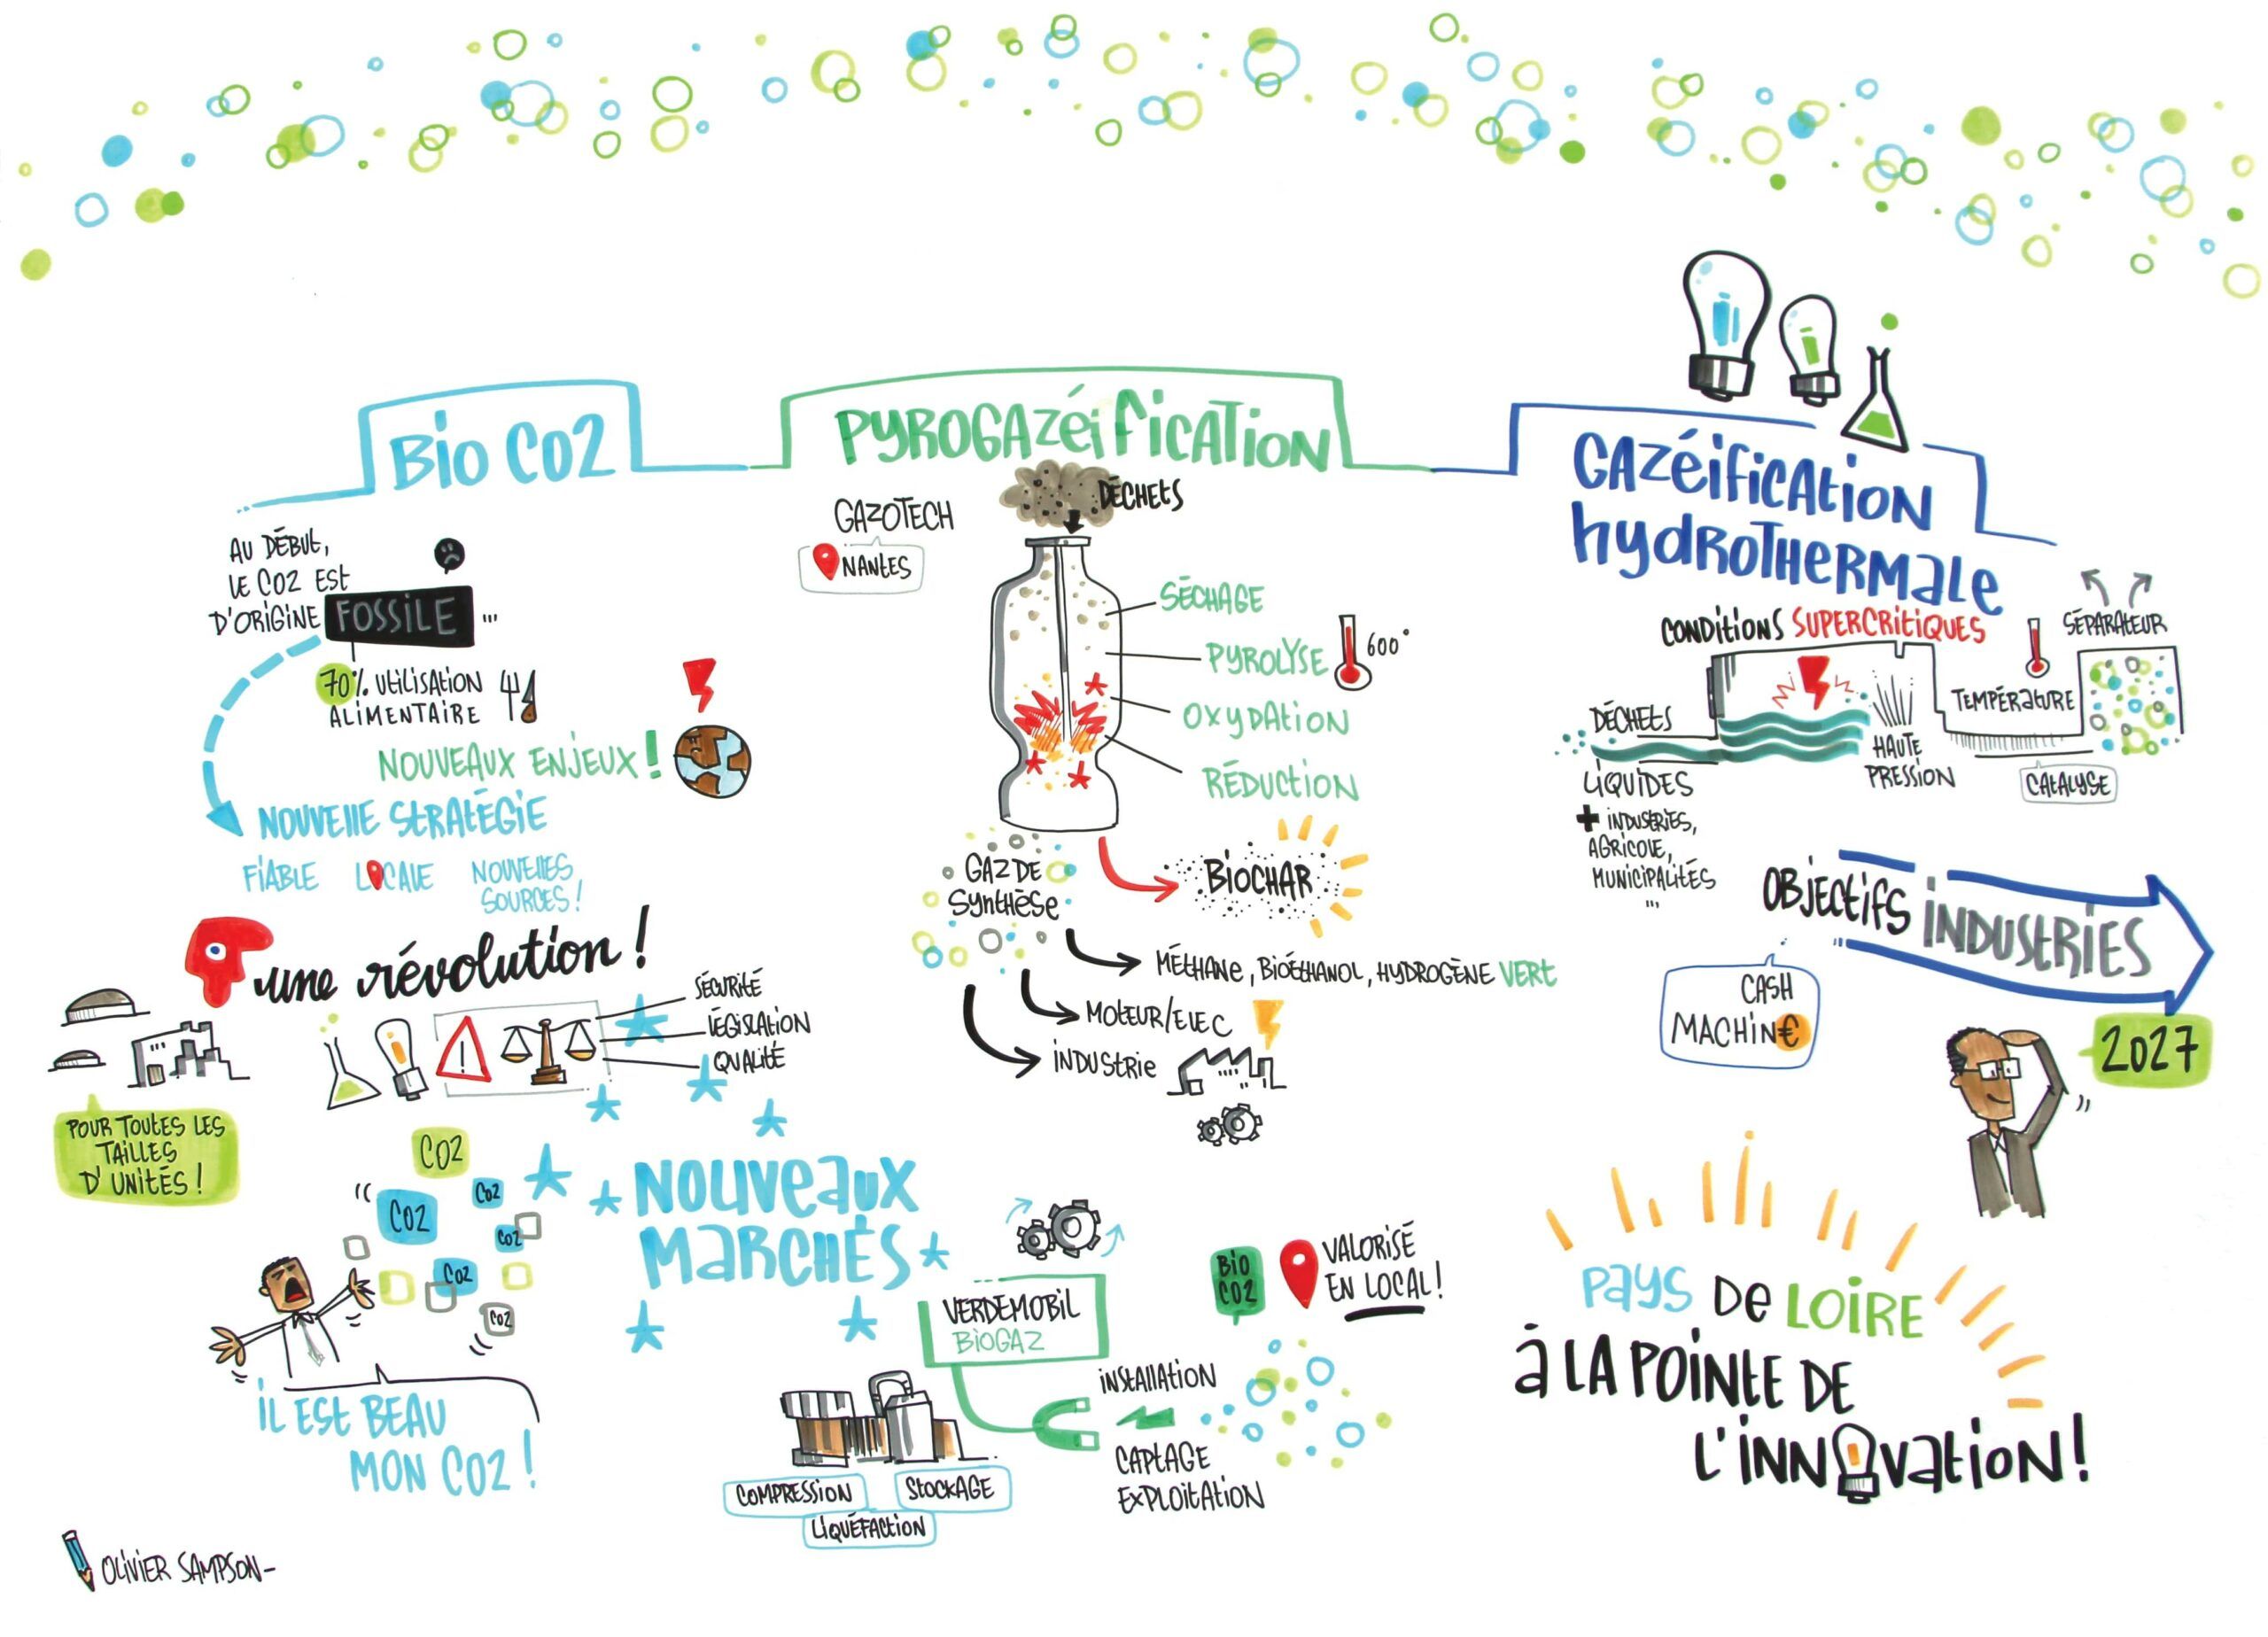 BIO CO2
AU DÉBUT,
LE CO2 EST
D'ORIGINE FOSSILE ...
70% UTILISATION
ALIMENTAIRE
NOUVEAUX ENJEUX !
NOUVELLE STRATÉGIE
FIABLE LOCALE NOUVELLES
SOURCES !
une révolution !
SÉCURITÉ
LÉGISLATION
QUALITÉ
POUR TOUTES LES
TAILLES
D'UNITÉS !
CO2
CO2
CO2
CO2
CO2
CO2
IL EST BEAU
MON CO2 !
NOUVEAUX
MARCHÉS
PYROGAZÉIFICATION
GAZOTECH
NANTES
DÉCHETS
SÉCHAGE
PYROLYSE 600°
OXYDATION
RÉDUCTION
GAZ DE
SYNTHÈSE
BIOCHAR
MÉTHANE, BIOÉTHANOL, HYDROGÈNE VERT
MOTEUR/ELEC
INDUSTRIE
VERDEMOBIL
BIOGAZ
BIO
CO2
VALORISÉ
EN LOCAL !
INSTALLATION
CAPTAGE
EXPLOITATION
COMPRESSION
STOCKAGE
LIQUÉFACTION
GAZÉIFICATION
HYDROTHERMALE
CONDITIONS SUPERCRITIQUES
SÉPARATEUR
TEMPÉRATURE
DÉCHETS
LIQUIDES
+ INDUSTRIES,
AGRICOLE,
MUNICIPALITÉS
...
HAUTE
PRESSION
CATALYSE
OBJECTIFS INDUSTRIES
CASH
MACHIN€
2027
PAYS DE LOIRE
À LA POINTE DE
L'INNOVATION !
OLIVIER SAMPSON-